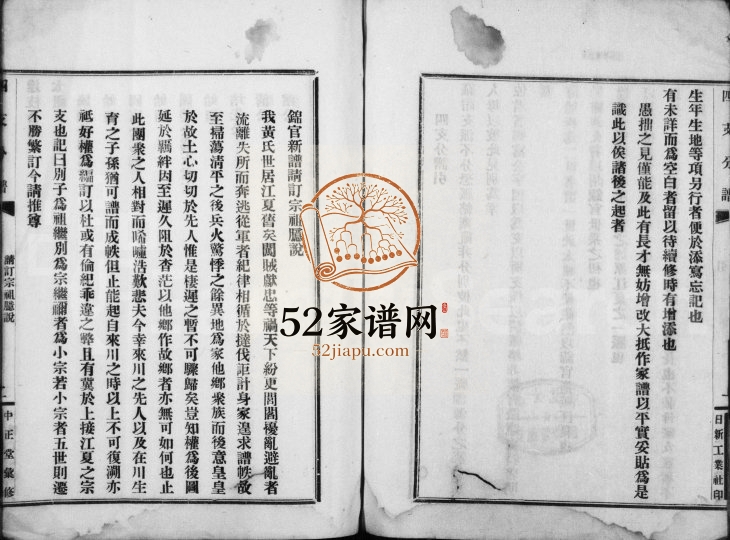 四支分譜
生年生地等項另行者便於添寫忘記也
有未詳而為空白者留以待續修時有增添也
愚拙之見僅能及此有長才無妨增改大抵作家譜以平實妥貼為是
識此以俟諸後之起者
日新工業社印
錦官新譜請訂宗祖臆說
我黃氏世居江夏舊矣闖賊獻忠等禍天下紛更閭閻擾亂避亂者
流離失所而奔逃從軍者紀律相循於撻伐詎計身家遑求譜帙故
至掃蕩清平之後兵火驚悸之餘異地為家他鄉聚族而後意皇皇
於故土心切切於先人惟是棲遲之暫不可驟歸矣豈知權為後圖
延於羈絆因至遲久阻於杳茫以他鄉作故鄉者亦無可如何也止
此團聚之人相對而唏噓浩歎悲夫今幸來川之先人以及在川生
育之子孫猶可譜而成帙但止能起自來川之時以上不可復溯亦
祗好權為編訂以杜或有倫紀乖違之弊且有冀於上接江夏之宗
支也記曰別子為祖繼別為宗繼禰者為小宗若小宗者五世則遷
不勝繁訂今請推尊
四支分譜
請訂宗祖臆說
中正堂彙修
52家谱网
52jiapu.com